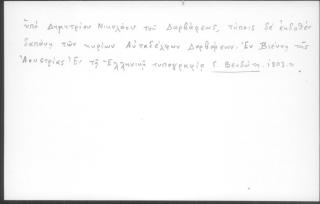 ὑπὸ Δημητρίου Νικολάου τοῦ Δαρβάρεως, τύποις δὲ ἐκδοθὲν
δαπάνῃ τῶν κυρίων Αὐταδέλφων Δαρβάρεων. Ἐν Βιέννῃ τῆς
Ἀουστρίας Ἐν τῇ Ἑλληνικῇ τυπογραφίᾳ Γ. Βενδώτη. 1803.